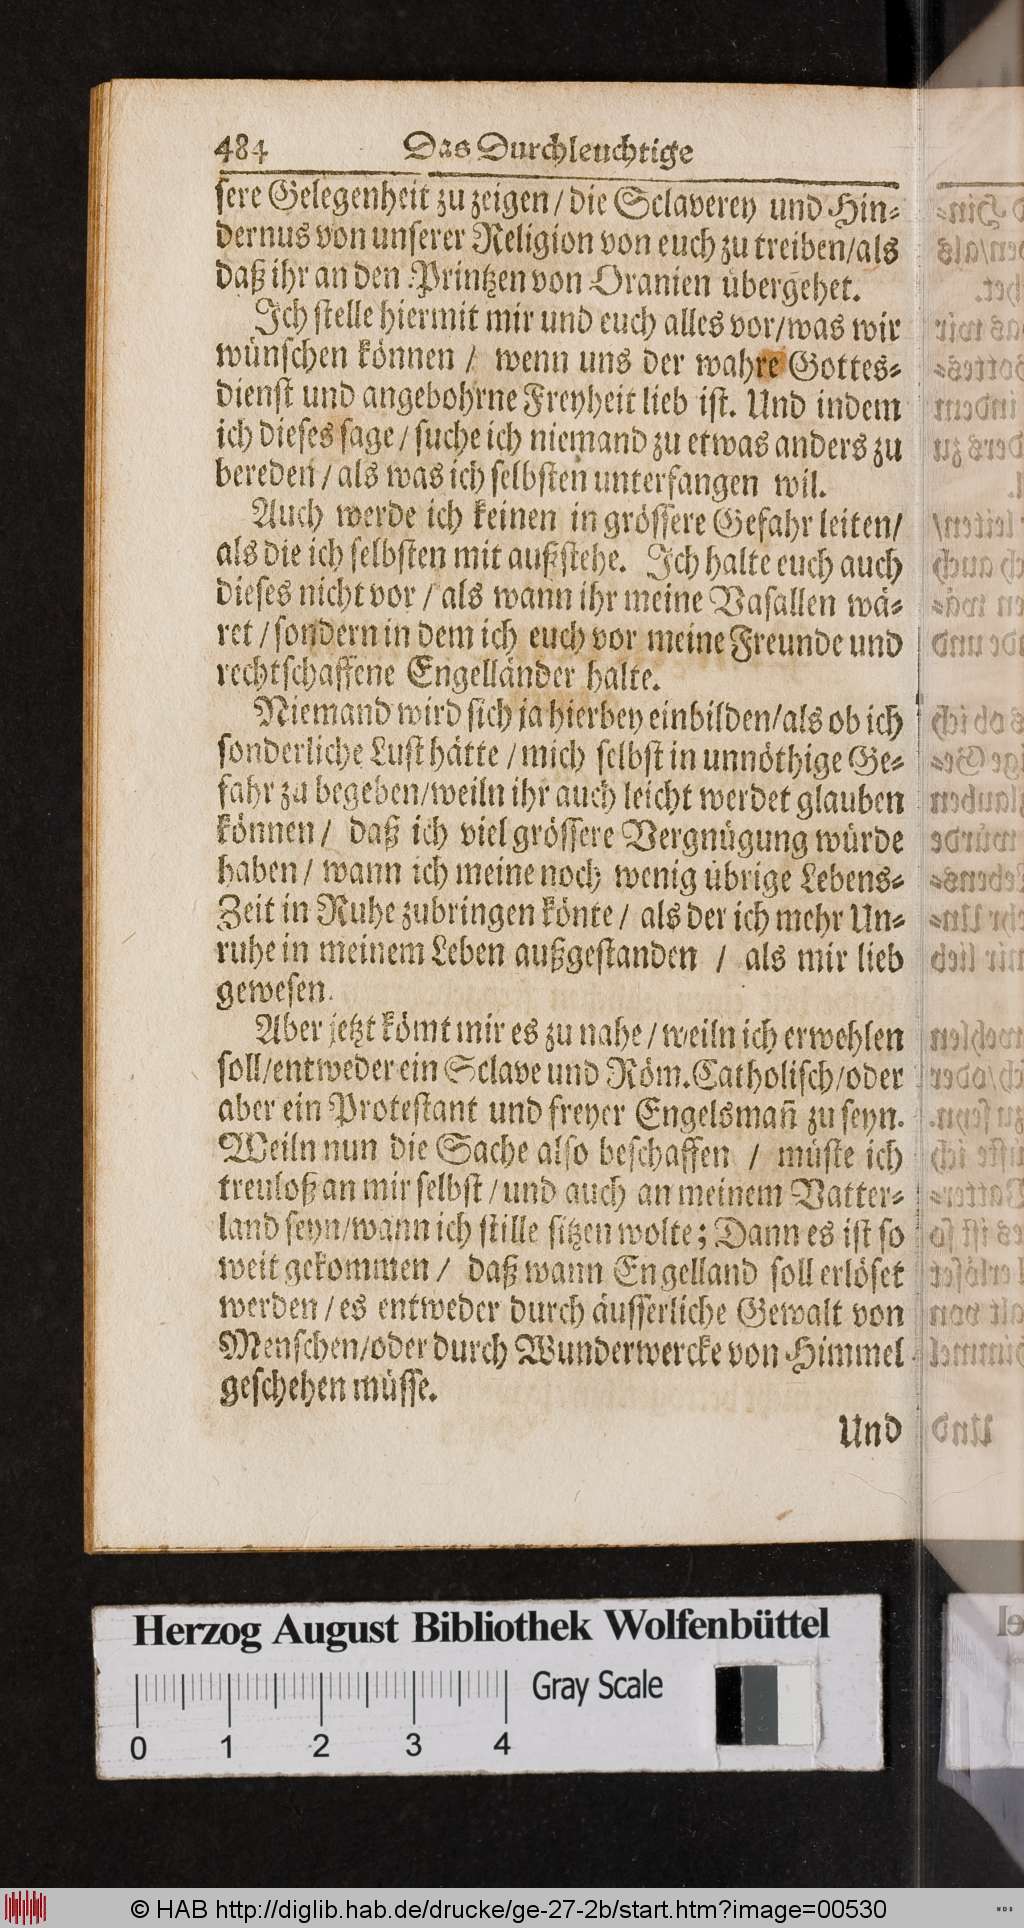 484 Das Durchleuchtige
sere Gelegenheit zu zeigen / die Sclaverey und Hin-
dernus von unserer Religion von euch zu treiben/als
daß ihr an den Printzen von Oranien übergehet.
Ich stelle hiermit mir und euch alles vor/was wir
wünschen können / wenn uns der wahre Gottes-
dienst und angebohrne Freyheit lieb ist. Und indem
ich dieses sage / suche ich niemand zu etwas anders zu
bereden / als was ich selbsten unterfangen wil.
Auch werde ich keinen in grössere Gefahr leiten/
als die ich selbsten mit außstehe. Ich halte euch auch
dieses nicht vor / als wann ihr meine Vasallen wä-
ret / sondern in dem ich euch vor meine Freunde und
rechtschaffene Engelländer halte.
Niemand wird sich ja hierbey einbilden/als ob ich
sonderliche Lust hätte / mich selbst in unnöthige Ge-
fahr zu begeben/weiln ihr auch leicht werdet glauben
können / daß ich viel grössere Vergnügung würde
haben / wann ich meine noch wenig übrige Lebens-
Zeit in Ruhe zubringen könte / als der ich mehr Un-
ruhe in meinem Leben außgestanden / als mir lieb
gewesen.
Aber jetzt kömt mir es zu nahe / weiln ich erwehlen
soll/entweder ein Sclave und Röm. Catholisch/oder
aber ein Protestant und freyer Engelsmañ zu seyn.
Weiln nun die Sache also beschaffen / müste ich
treuloß an mir selbst / und auch an meinem Vatter-
land seyn/wann ich stille sitzen wolte; Dann es ist so
weit gekommen / daß wann Engelland soll erlöset
werden / es entweder durch äusserliche Gewalt von
Menschen/oder durch Wunderwercke von Himmel
geschehen müsse.
Und
Herzog August Bibliothek Wolfenbüttel
Gray Scale
0 1 2 3 4
© HAB http://diglib.hab.de/drucke/ge-27-2b/start.htm?image=00530